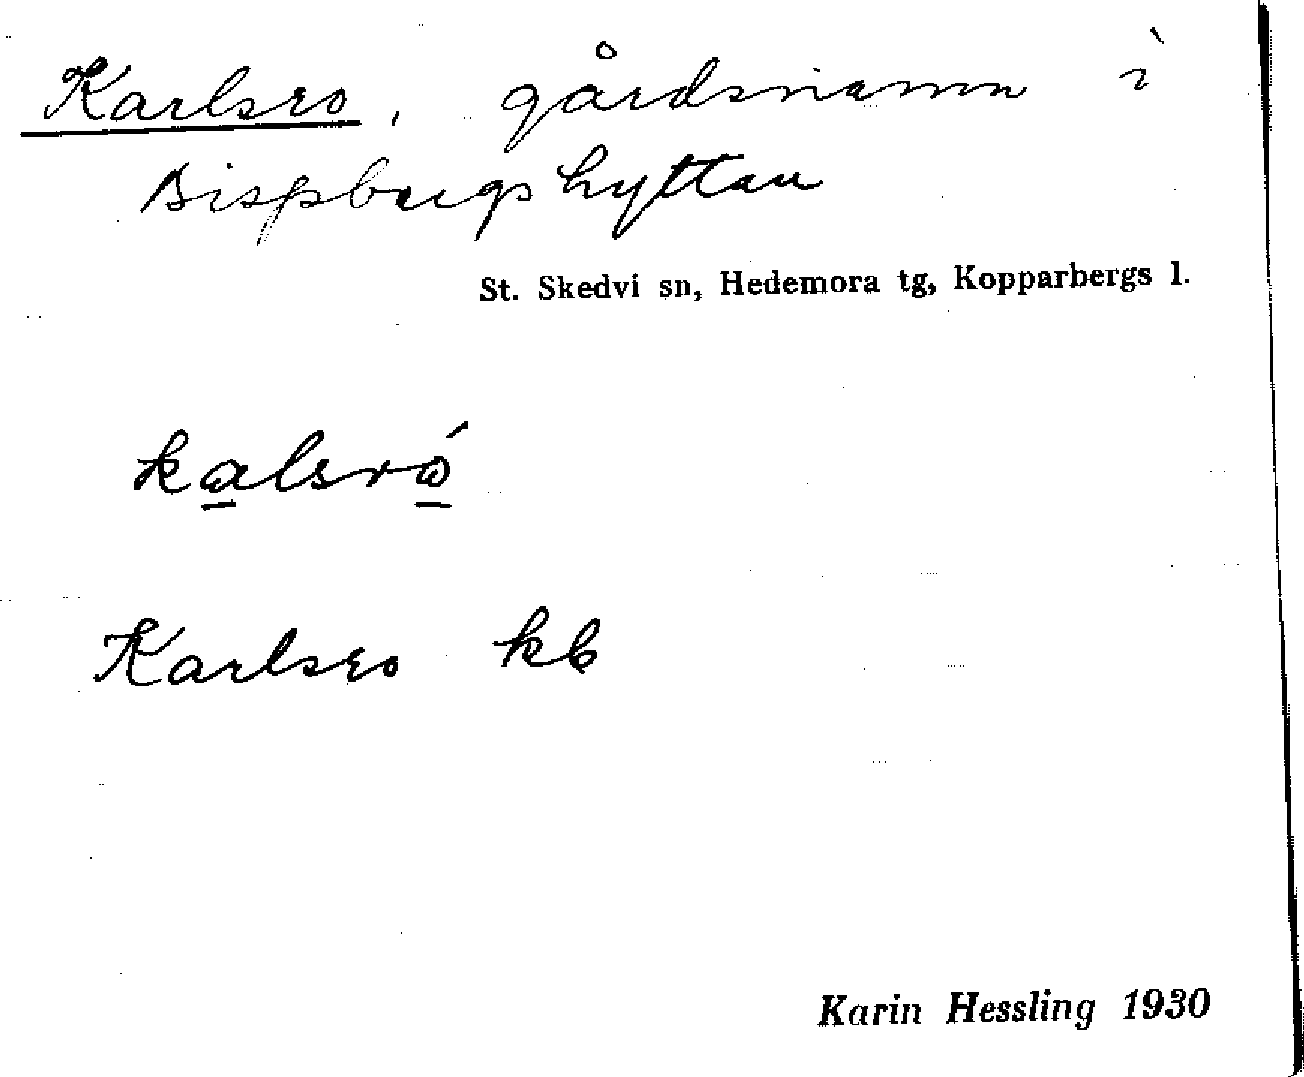 Karlsro, gårdsnamn i
Bispbergshyttan
St. Skedvi sn, Hedemora tg, Kopparbergs l.
Karlsro kb
Karin Hessling 1930